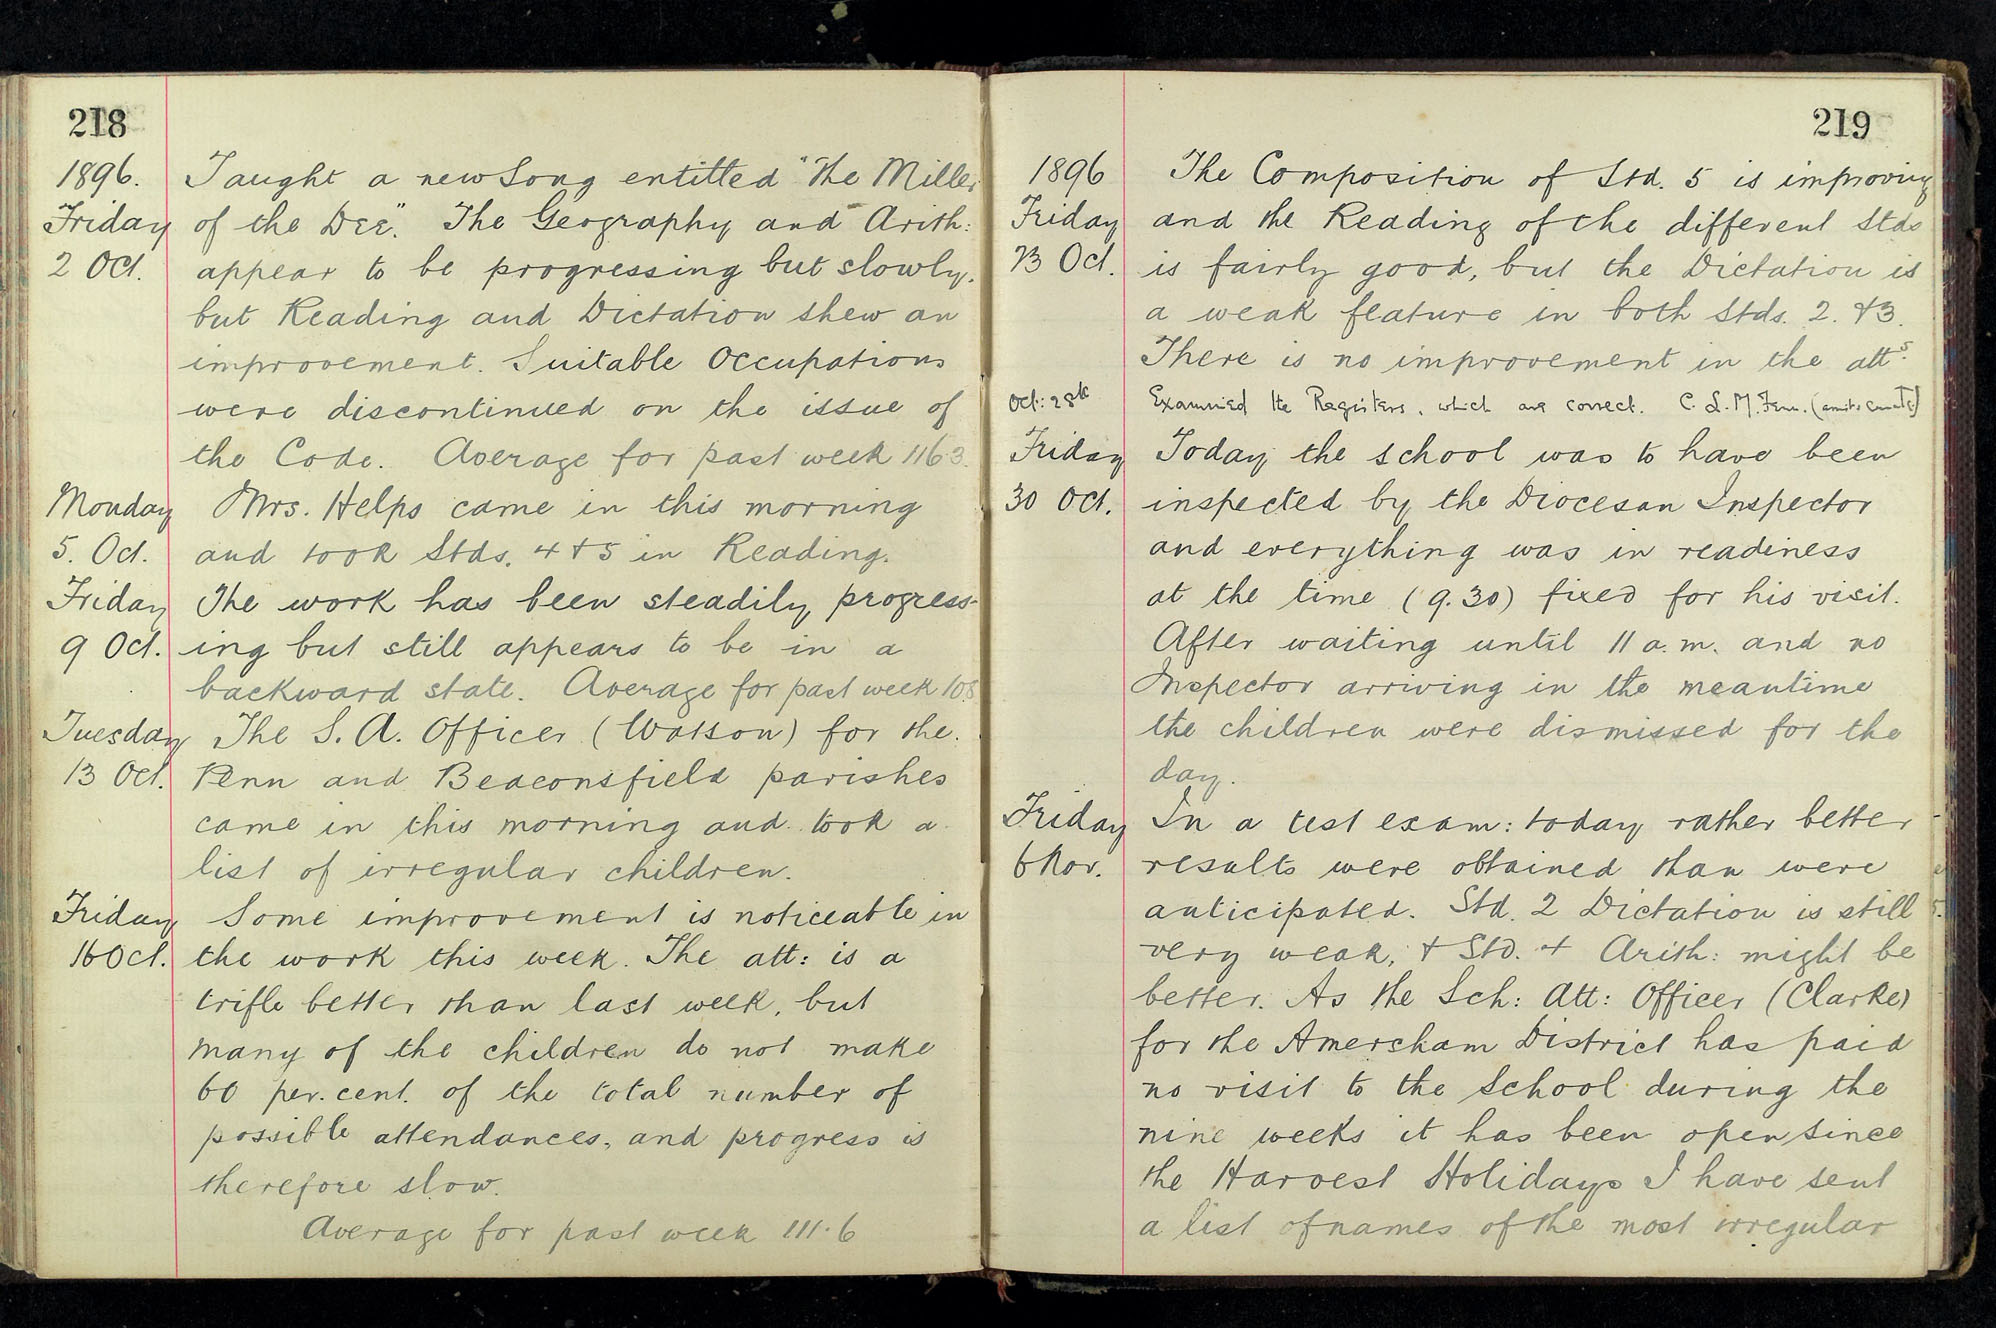 218
1896. Taught a new Song entitled "The Miller
Friday of the Dee". The Geography and Arith:
2 Oct. appear to be progressing but slowly,
but Reading and Dictation shew an
improvement. Suitable Occupations
were discontinued on the issue of
the Code. Average for past week 116.3.
Monday Mrs. Helps came in this morning
5. Oct. and took Stds. 4 + 5 in Reading.
Friday The work has been steadily progress-
9 Oct. ing but still appears to be in a
backward state. Average for past week
Tuesday The S. A. Officer (Watson) for the
13 Oct. Penn and Beaconsfield parishes
came in this morning and took a
list of irregular children.
Friday Some improvement is noticeable in
16 Oct. the work this week. The att: is a
trifle better than last week, but
many of the children do not make
60 per. cent. of the total number of
possible attendances, and progress is
therefore slow.
Average for past week 111.6
219
1896 The Composition of Std. 5 is improving
Friday and the Reading of the different Stds
23 Oct. is fairly good, but the Dictation is
a weak feature in both Stds. 2. + 3.
There is no improvement in the atts.
Oct: 28th Examined the Registers, which are correct. C. L. M. Fenn.
Friday Today the school was to have been
30 Oct. inspected by the Diocesan Inspector
and everything was in readiness
at the time (9.30) fixed for his visit.
After waiting until 11 a.m. and no
Inspector arriving in the meantime
the children were dismissed for the
day.
Friday In a test exam: today rather better
6 Nov. results were obtained than were
anticipated. Std. 2 Dictation is still
very weak, + Std. 4 Arith: might be
better. As the Sch: Att: Officer (Clarke)
for the Amersham District has paid
no visit to the School during the
nine weeks it has been open since
the Harvest Holidays I have sent
a list of names of the most irregular